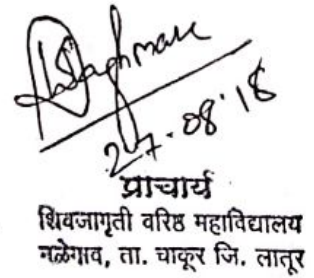 27.08.18
प्राचार्य
शिवजागृती वरिष्ठ महाविद्यालय
नळेगाव, ता. चाकूर जि. लातूर